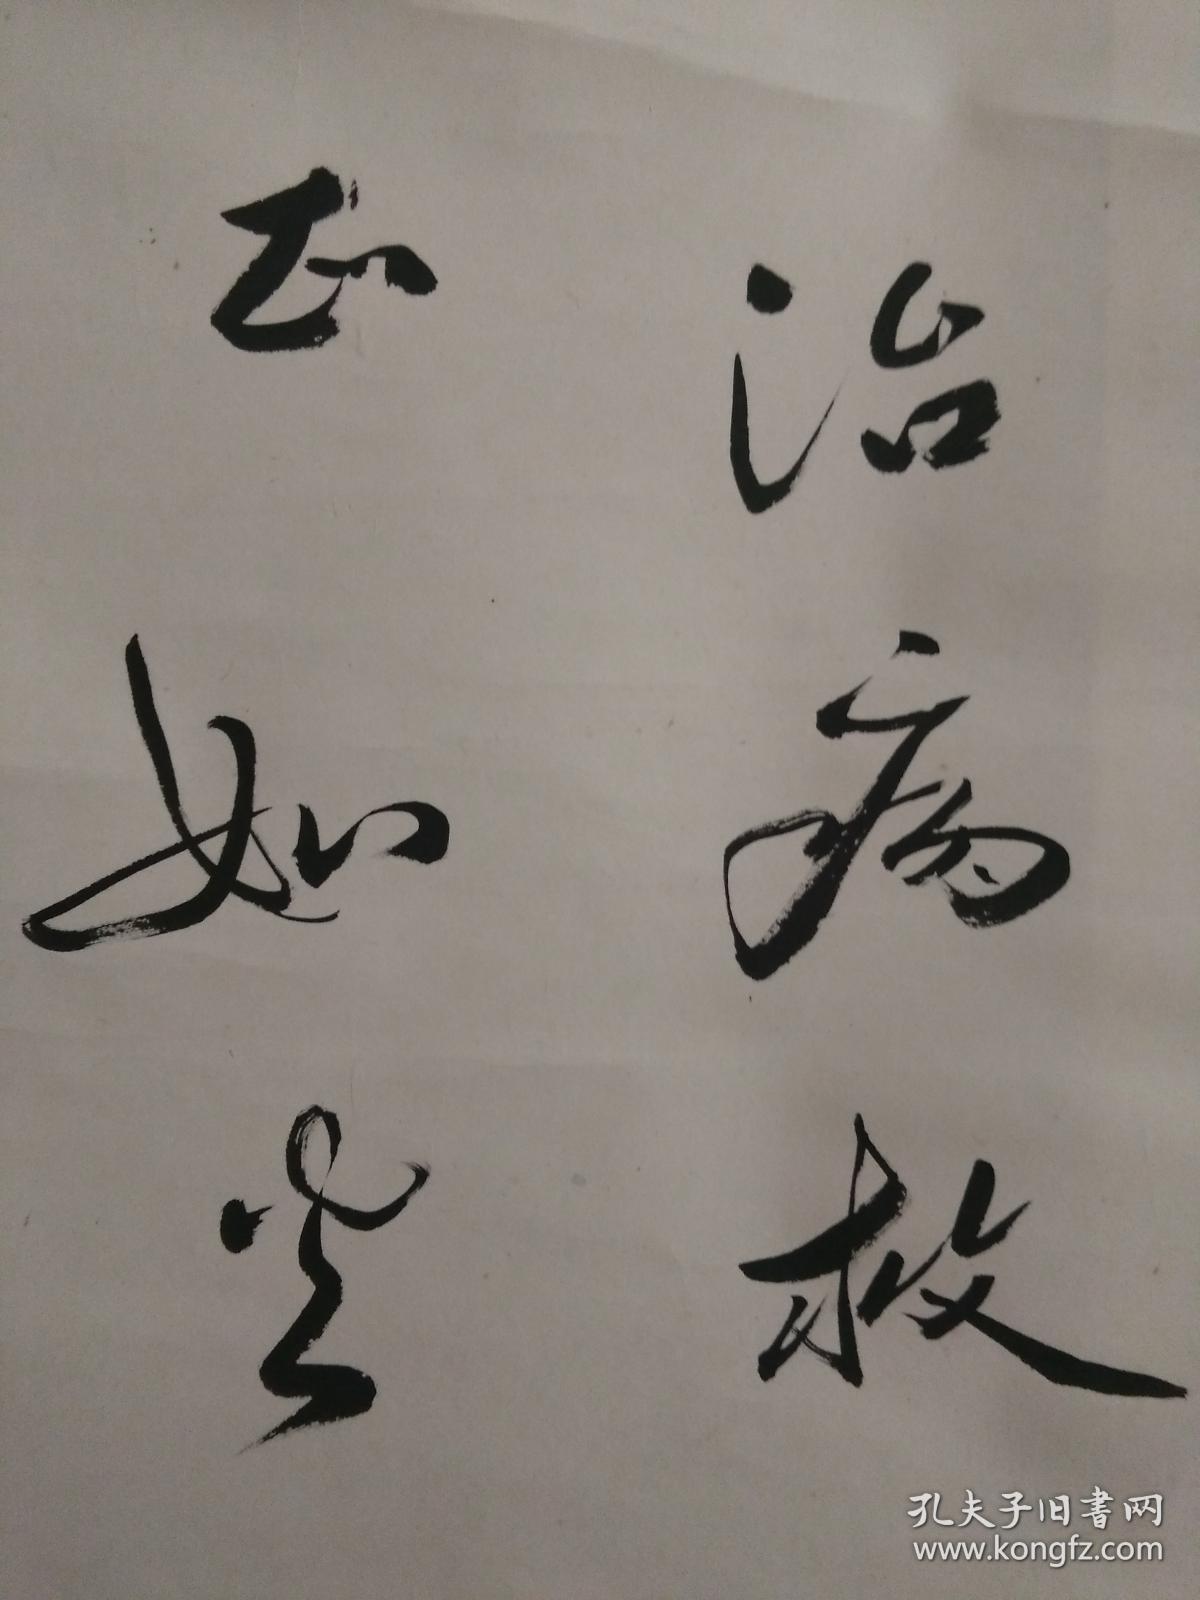 治病救
正如
孔夫子旧书网
www.kongfz.com